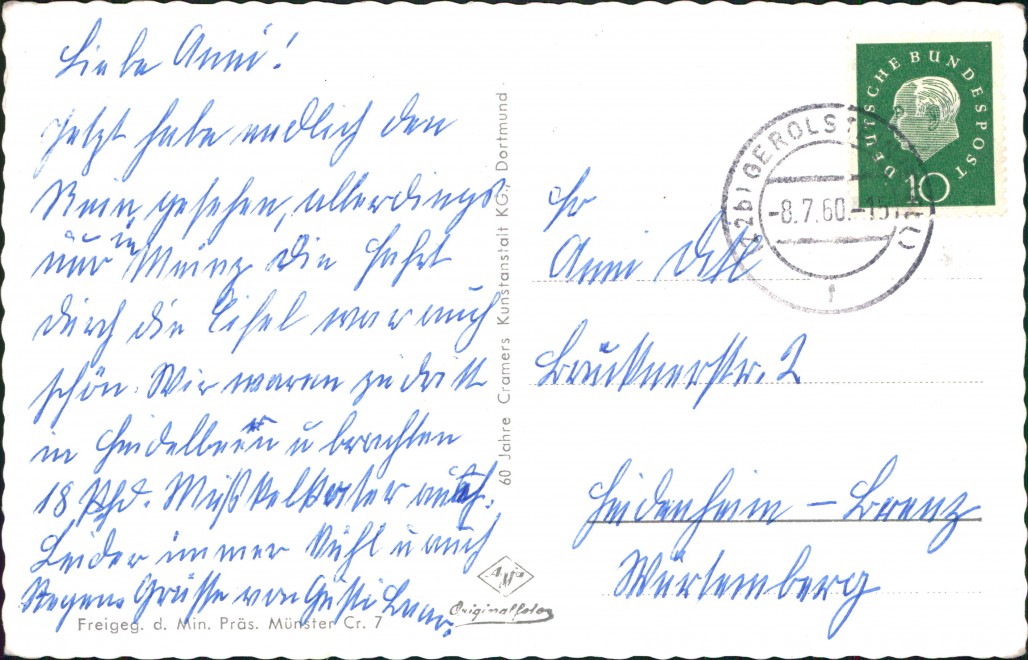 Liebe Anni!
Jetzt habe endlich den
Rhein gesehen, allerdings
nur in Mainz. Die Fahrt
durch die Eifel war auch
schön. Wir waren zu dritt
in Heidelbeern u brachten
18 Pfd. Muskelkater auch.
Leider immer kühl u auch
Regen. Grüsse von Gusti
Freigeg. d. Min. Präs. Münster Cr. 7
60 Jahre Cramers Kunstanstalt KG., Dortmund
Agfa
Originalfoto
DEUTSCHE BUNDESPOST
10
(22b) GEROLST
-8.7.60.-15
f
Anni
Brucknerstr. 2
Heidenheim – Brenz
Würtemberg